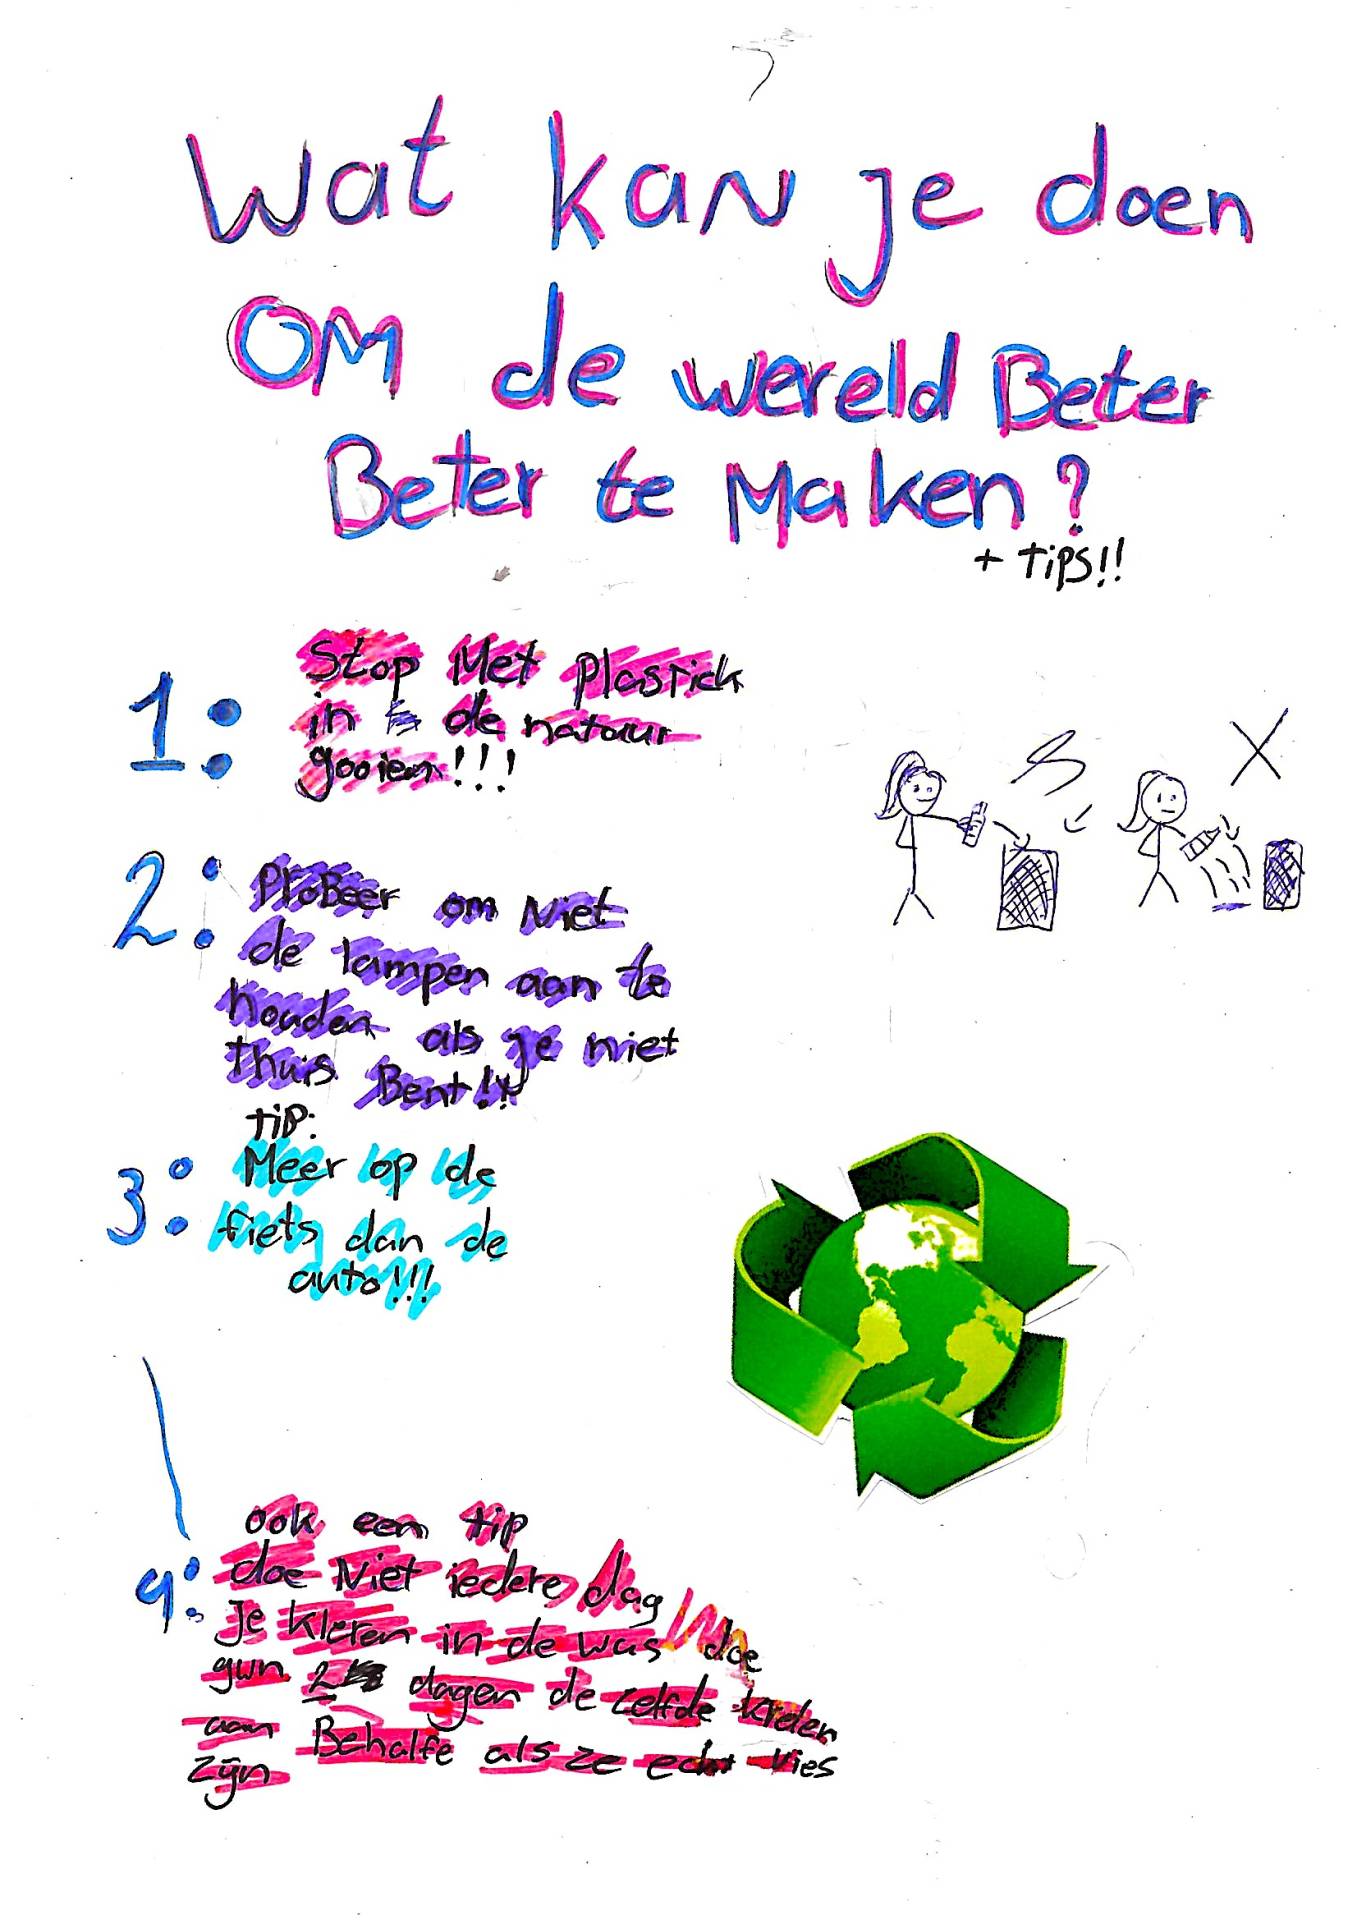 Wat kan je doen
OM de wereld Beter
Beter te Maken?
+ TIPS!!
1: Stop Met Plastick
in de natuur
gooien!!!
2: ProBeer om Niet
de lampen aan te
houden als je niet
thuis Bent!!
TIP:
3: Meer op de
fiets dan de
auto!!!
ook een tip
4: doe Niet iedere dag
je kleren in de was doe
gwn 2 dagen de zelfde kleren
aan Behalfe als ze echt vies
zijn